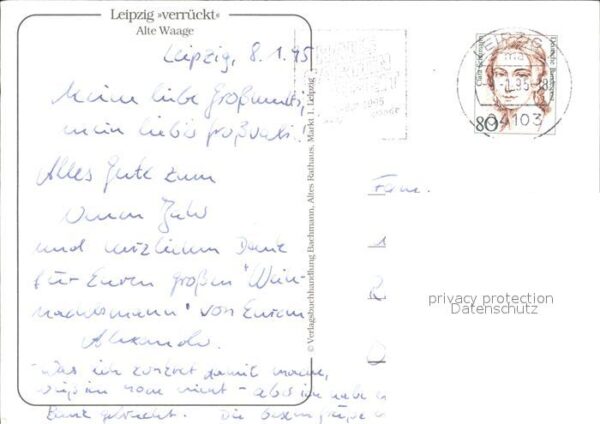 Leipzig »verrückt«
Alte Waage
Leipzig, 8.1.95
Meine liebe Großmutti,
mein liebster Großvati!
Alles Gute zum
neuen Jahr
und herzlichen Dank
für Euren großen "Weih-
nachtsmann" von Eurem
Alexander.
Was ich zuerst damit mache,
weiß ich noch nicht - aber ich habe es
Die besten Grüße
© Verlagsbuchhandlung Bachmann, Altes Rathaus, Markt 1, Leipzig
Fam.
LEIPZIG
04103
80
Clara Schumann
Deutsche Bundespost
privacy protection
Datenschutz